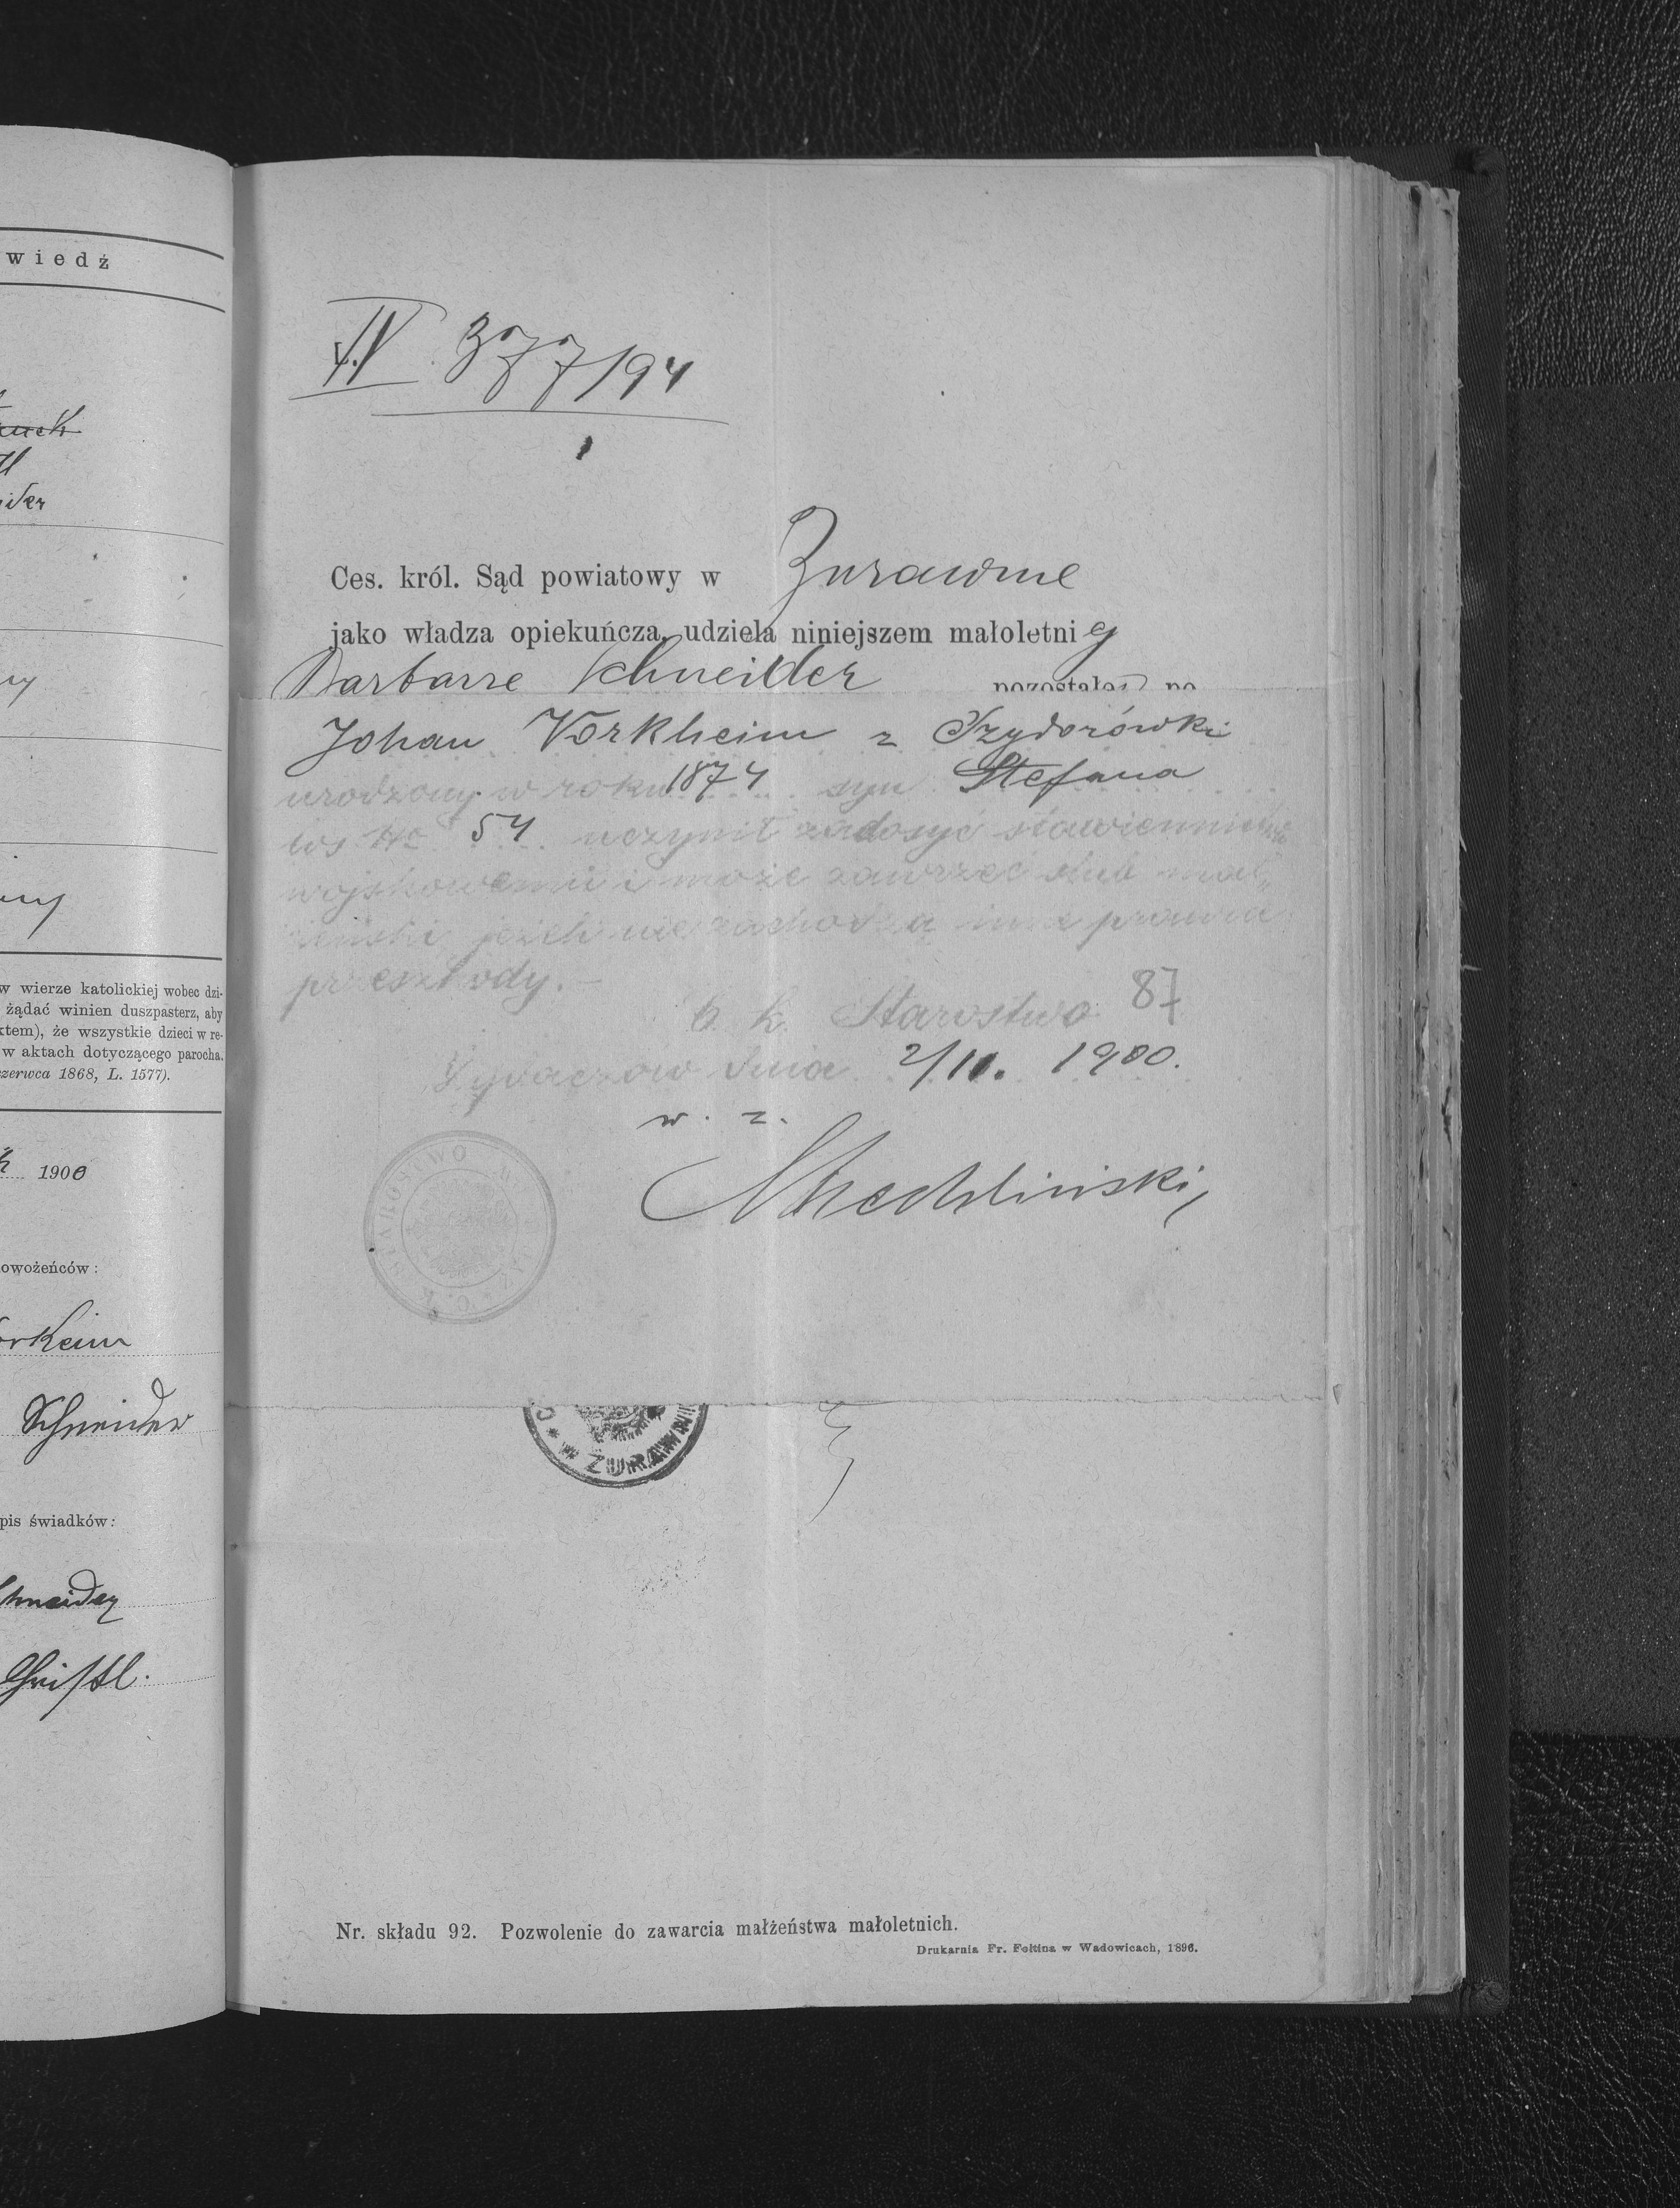 wiedź
ider
w wierze katolickiej wobec dzi-
żądać winien duszpasterz, aby
ktem), że wszystkie dzieci w re-
w aktach dotyczącego parocha.
zerwca 1868, L. 1577).
1900
owożeńców:
orkeim
Schneider
pis świadków:
chneider
Christl.
IV 377/94
1
Ces. król. Sąd powiatowy w Żurawnie
jako władza opiekuńcza, udziela niniejszem małoletni ej
Barbarze Schneider pozostałej po
Johan Vorkheim z Izydorówki
urodzony w roku 1874 syn Stefana
los Nr 54 uczynił zadosyć stawiennictwu
wojskowemu i może zawrzeć ślub mał„
żeński jeżeli nie zachodzą inne prawne
przeszkody.-
C. k. Starostwo 87
Żydaczów dnia 2/11. 1900.
w. z.
STAROSTWO
C.K.
C * W ŻURAWNIE
Nr. składu 92. Pozwolenie do zawarcia małżeństwa małoletnich.
Drukarnia Fr. Foltina w Wadowicach, 1896.